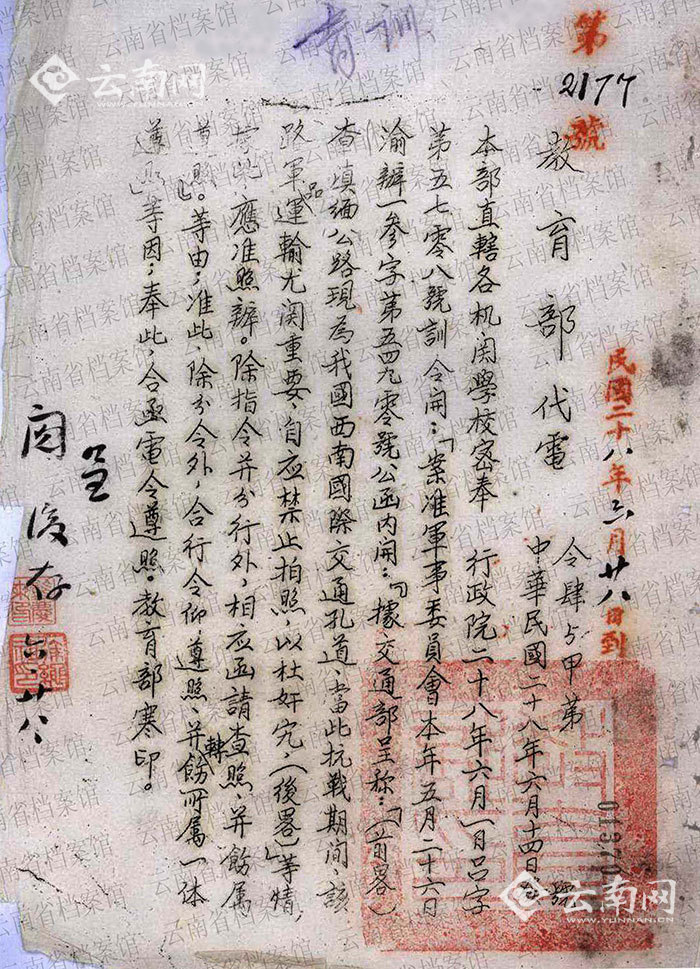 育训
第
2177
號
教育部代電
民國二十八年六月廿八日到
令肆与甲第 號
中華民國二十八年六月十四日
本部直轄各机闗學校密奉 行政院二十八年六月一日吕字
第五七零八號訓令開：「案准軍事委員會本年五月二十六日
渝辦一參字第五四九零號公函内開：『據交通部呈称：「（前畧）
查滇緬公路現為我國西南國際交通孔道、當此抗戰期间、該
路軍品運輸尤関重要、自应禁止拍照、以杜奸宄、（後畧）」等情
據此、應准照辦。除指令并分行外、相应函請查照、并飭属
遵照』。等由；准此、除分令外、合行令仰遵照、并轉飭所属一体
遵照」等因；奉此、合亟電令遵照。教育部寒印。
呈
閱後存
六、廿八
01570
云南网
云南网
WWW.YUNNAN.CN
云南省档案馆